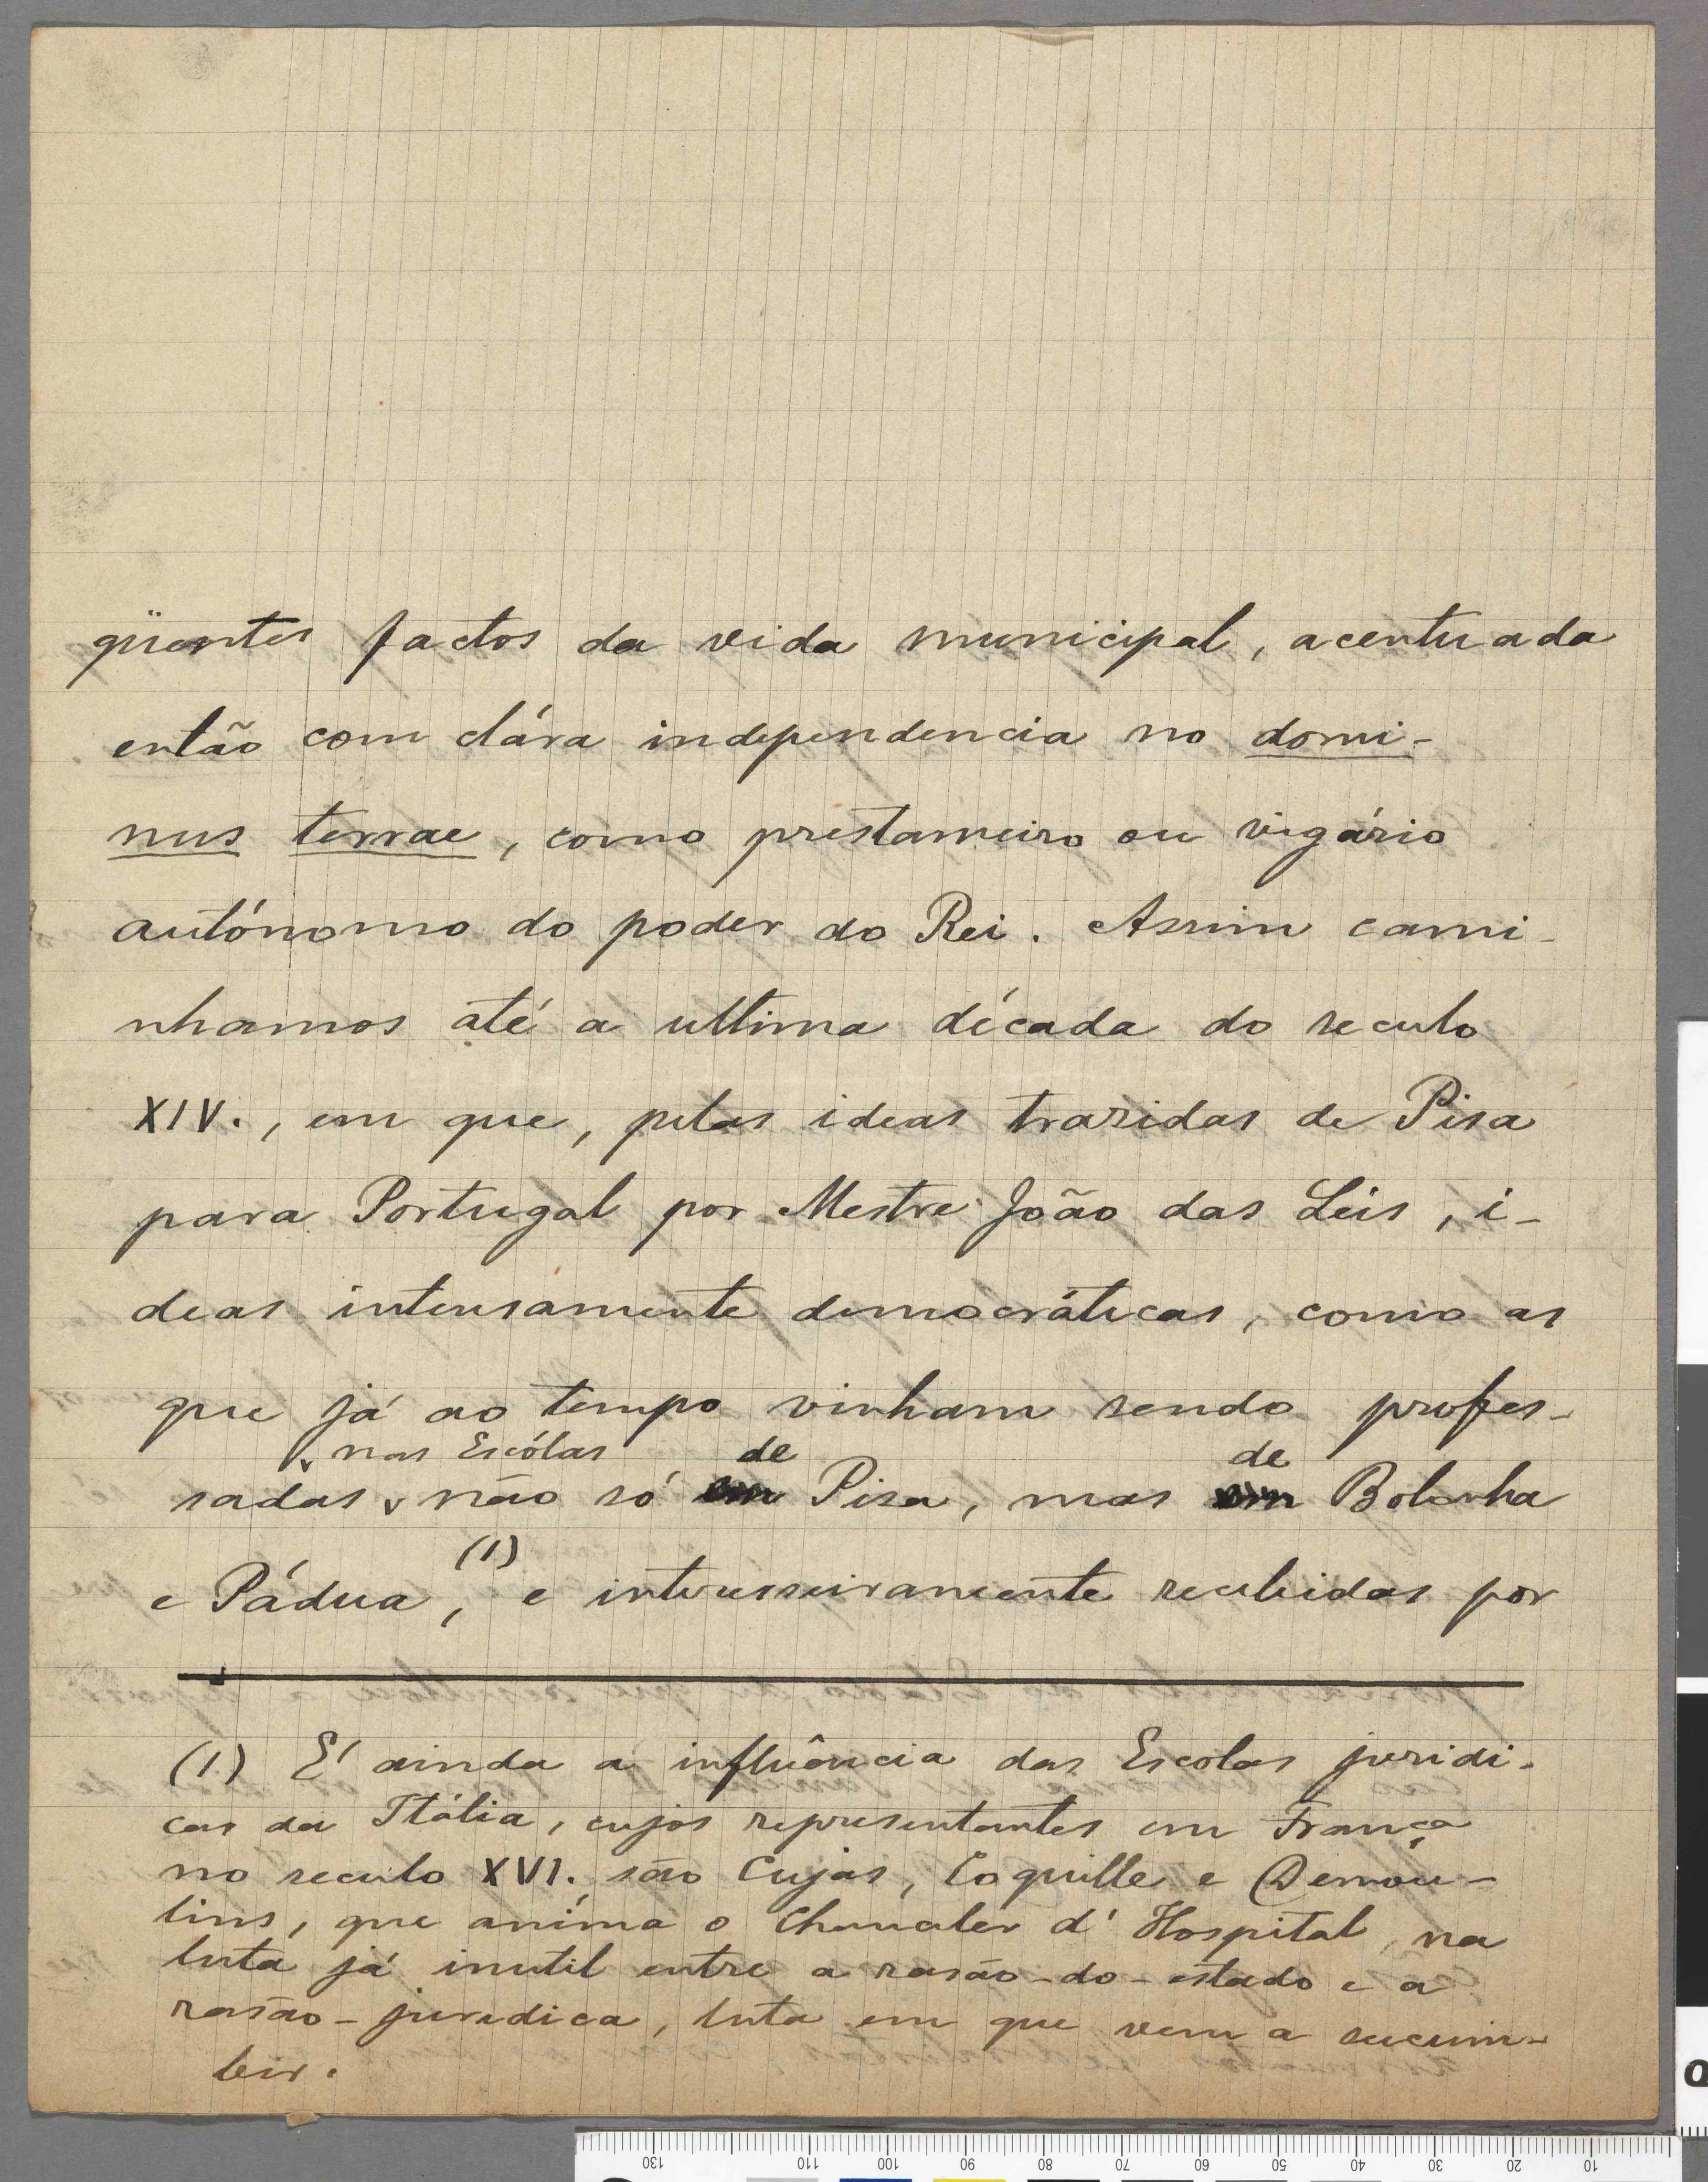 güentes factos da vida municipal, acentuada
então com clára independencia no domi-
nus terrae, como prestameiro ou vigário
autónomo do poder do Rei. Assim cami-
nhamos até a ultima década do seculo
XIV., em que, pelas ideas trazidas de Pisa
para Portugal por Mestre João das Leis, i-
deas intensamente democráticas, como as
que já ao tempo vinham sendo profes-
nas Escólas de de
sadas, não só em Pisa, mas em Bolonha
(1)
e Pádua, e interesseiramente recebidas por
(1) E' ainda a influência das Escolas juridi-
cas da Itália, cujos representantes em França
no seculo XVI. são Cujas, Coquille e Demou-
lins, que anima o Chanceler d' Hospital, na
luta já inutil entre a rasão-do-estado e a
rasão-juridica, luta em que vem a sucum-
bir.
130 110 100 90 80 70 60 50 40 30 20 10